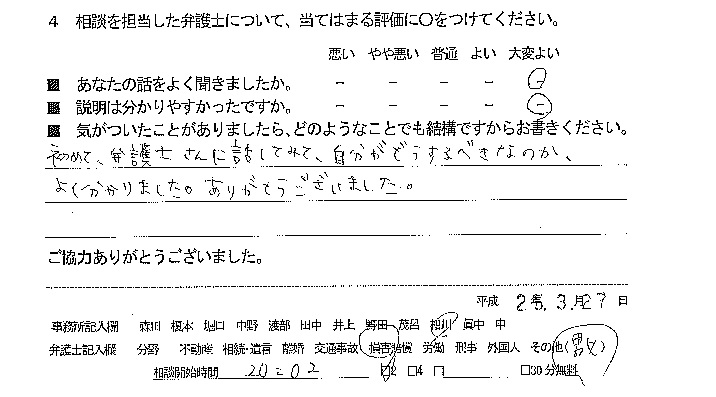 4 相談を担当した弁護士について、当てはまる評価に〇をつけてください。
悪い やや悪い 普通 よい 大変よい
あなたの話をよく聞きましたか。 － － － － －
説明は分かりやすかったですか。 － － － － －
気がついたことがありましたら、どのようなことでも結構ですからお書きください。
初めて、弁護士さんに話してみて、自分がどうするべきなのか、
よく分かりました。ありがとうございました。
ご協力ありがとうございました。
平成 25. 3. 月27 日
事務所記入欄 森田 榎本 堀口 中野 渡部 田中 井上 野田 茂呂 細川 眞中 申
弁護士記入欄 分野 不動産 相続・遺言 離婚 交通事故 損害賠償 労働 刑事 外国人 その他(男女)
相談開始時間 20=02 □2 □4 □ □30分無料